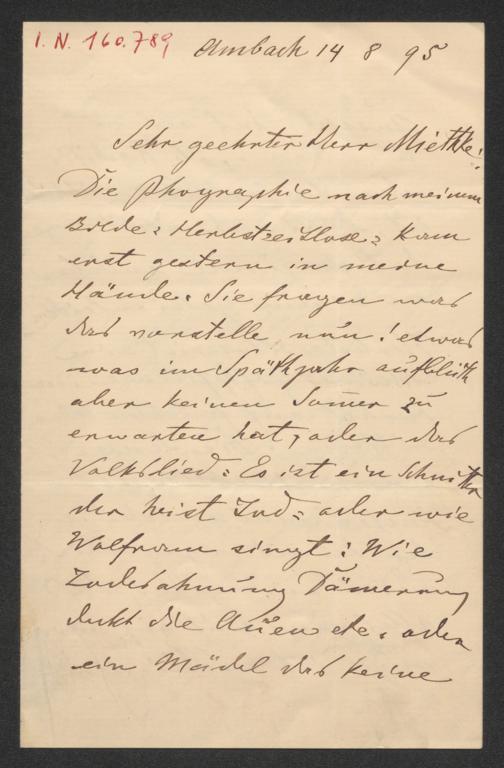 I. N. 160.789
Ambach 14 8 95
Sehr geehrter Herr Miethke!
Die Phographie nach meinem
Bilde = Herbstzeitlose = kam
erst gestern in meine
Hände. Sie fragen was
das vorstelle, nun! etwas
was im Spätjahr aufblüth
aber keinen Somer zu
erwarten hat, oder das
Volkslied = Es ist ein Schnitter
der heist Tod = oder wie
Wolfram singt: Wie
Todesahnung Dämerung
dekt die Auen etc. oder
ein Mädel das keine